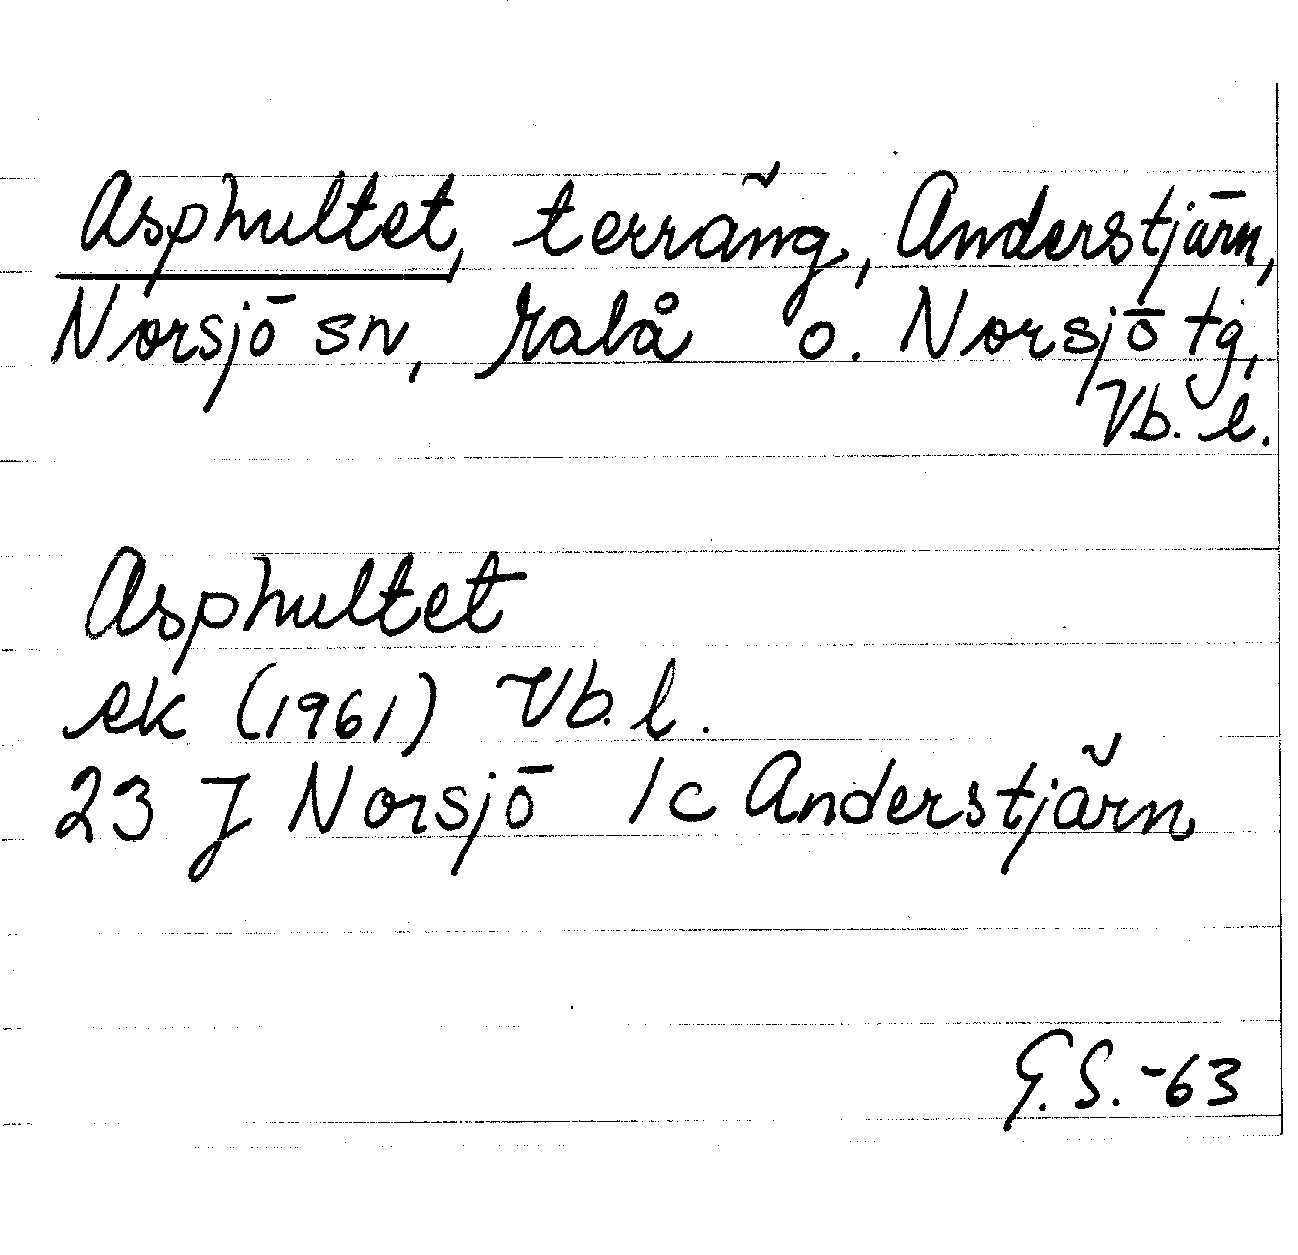 Asphultet, terräng, Anderstjärn,
Norsjö sn, Malå o. Norsjö tg,
Vb. l.
Asphultet
ek (1961) Vb. l.
23 J Norsjö 1c Anderstjärn
G. S. -63